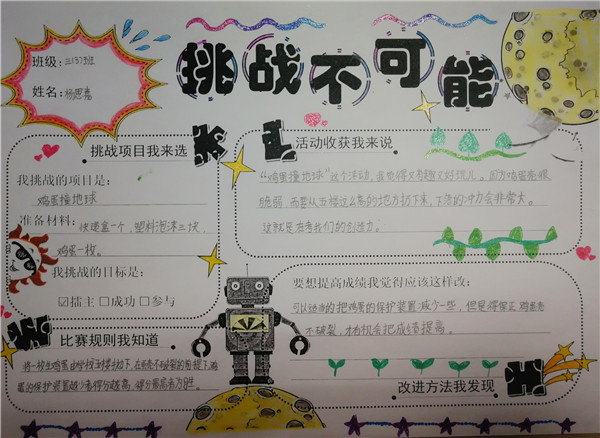 挑战不可能
班级：三(3)班
姓名：杨思嘉
挑战项目我来选
我挑战的项目是：
鸡蛋撞地球
准备材料：快递盒一个，塑料泡沫三块，
鸡蛋一枚。
我挑战的目标是：
☑擂主 ☐成功 ☐参与
比赛规则我知道
将一枚生鸡蛋由学校五楼扔下，在蛋壳不破裂的前提下，鸡
蛋的保护装置越少者得分越高，得分最高者为胜。
活动收获我来说
“鸡蛋撞地球”这个活动，我觉得又有趣又好玩儿。因为鸡蛋壳很
脆弱，而要从五楼这么高的地方扔下来，下落的冲力会非常大。
这就是在考我们的创造力。
要想提高成绩我觉得应该这样改：
可以适当的把鸡蛋的保护装置减少一些，但是得保证鸡蛋壳
不破裂，才有机会把成绩提高。
改进方法我发现